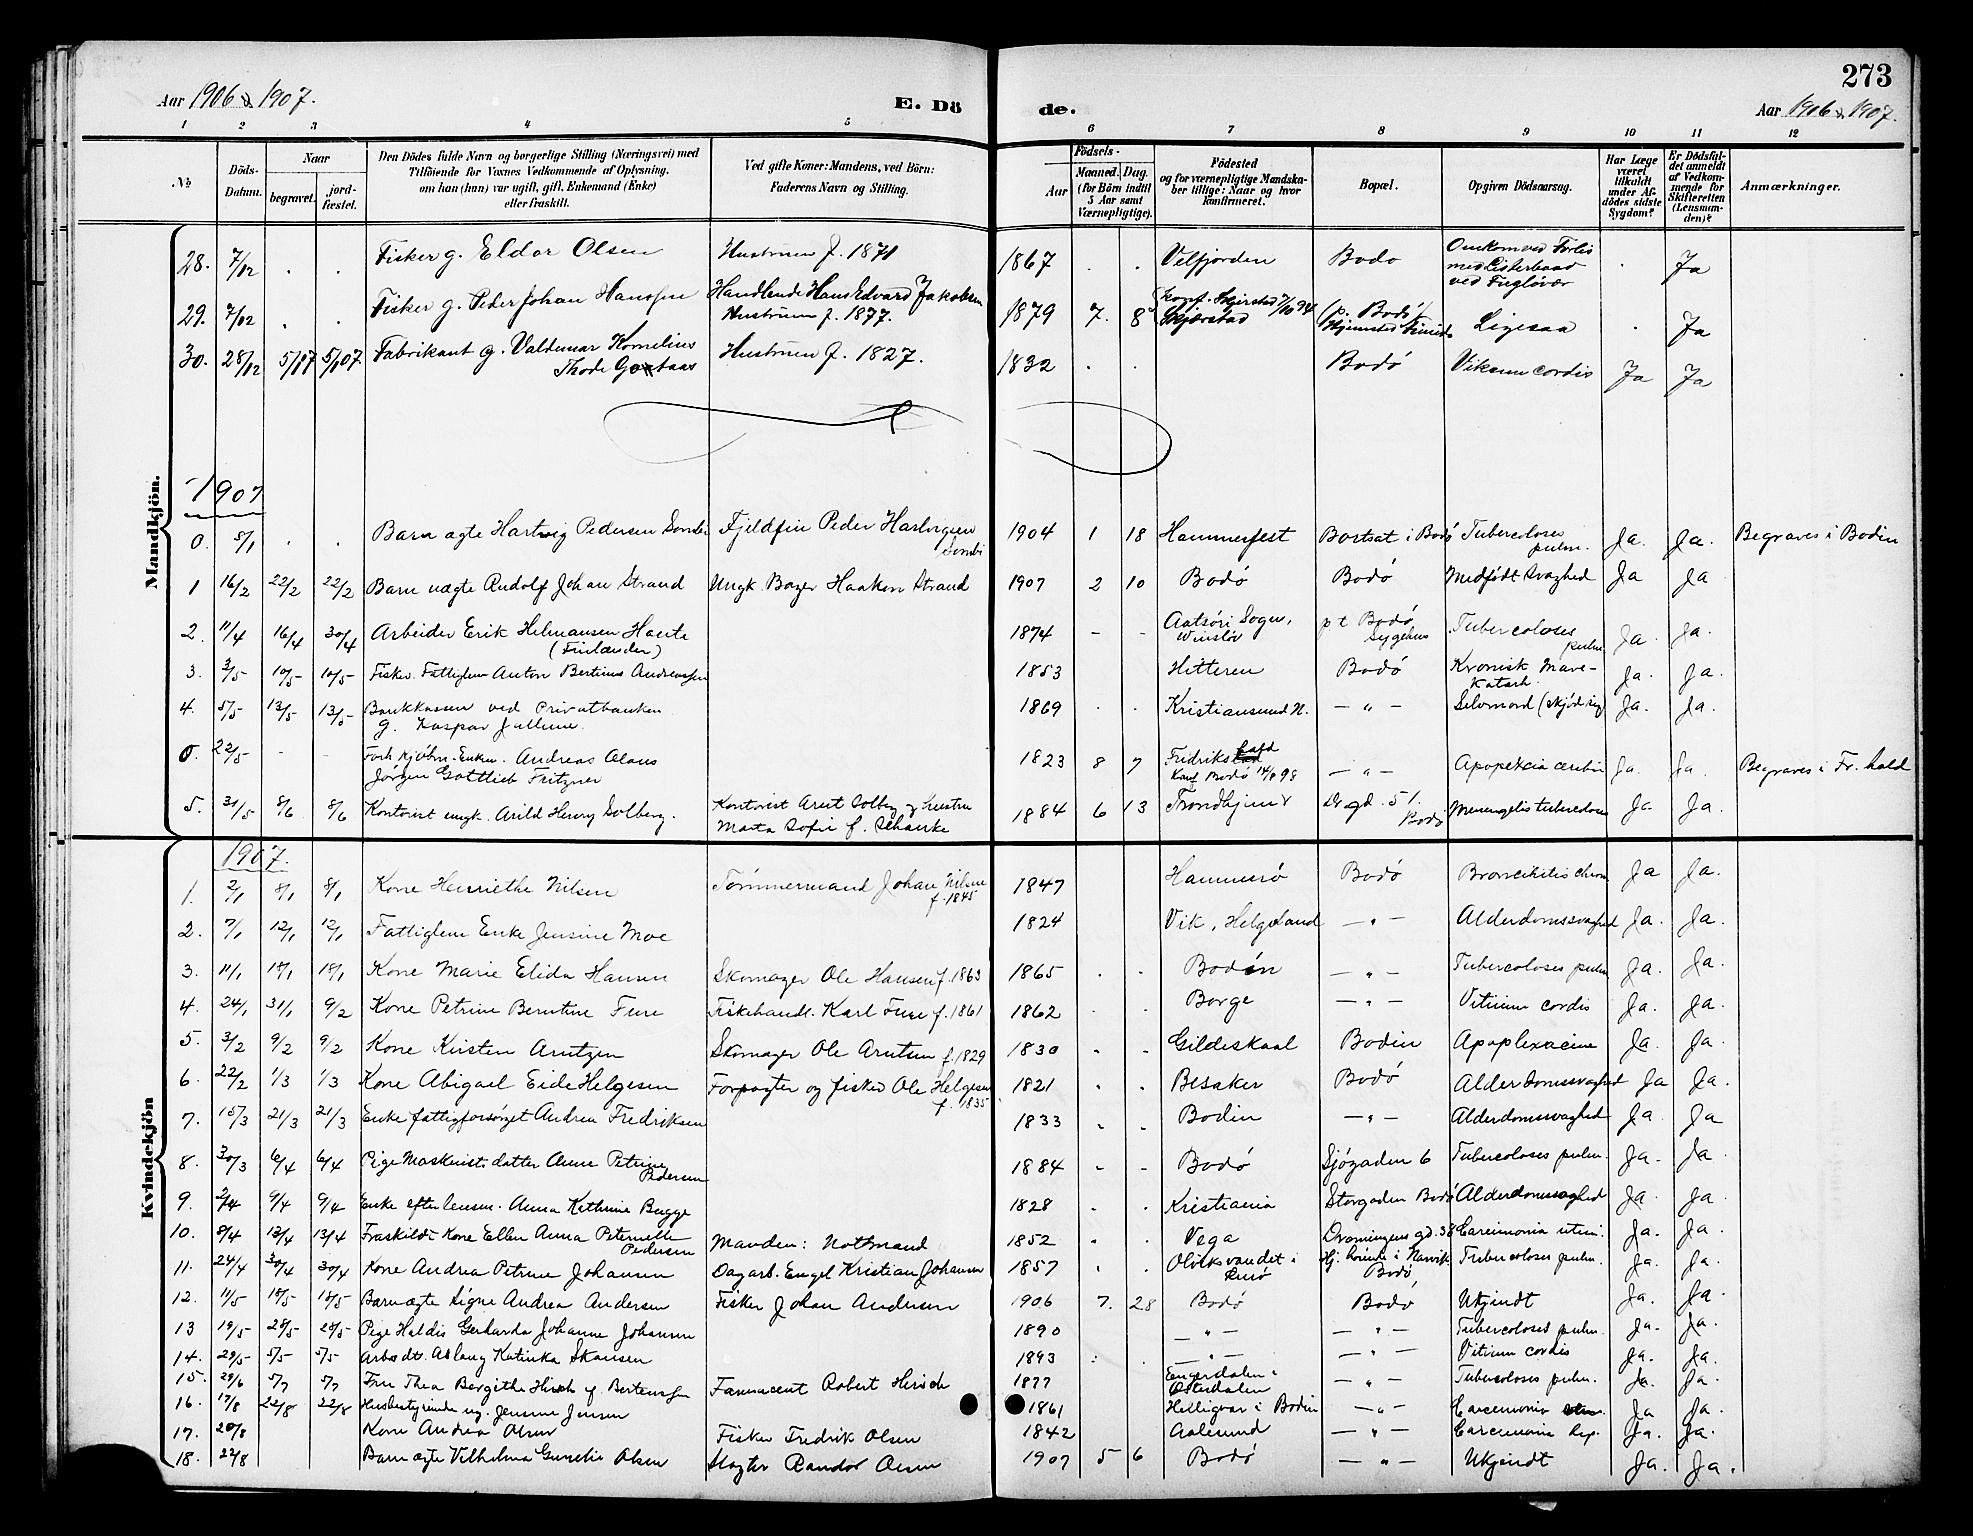 273
Aar 1906 & 1907.
E. Dö
de.
Aar 1906 & 1907.
1 2 3 4 5 6 7 8 9 10 11 12
No.
Döds-Datum.
Naar
begravet.
jordfæstet.
Den Dödes fulde Navn og borgerlige Stilling (Næringsvei) med
Tilföiende for Voxnes Vedkommende af Oplysning,
om han (hun) var ugift, gift, Enkemand (Enke)
eller fraskilt.
Ved gifte Koner: Mandens, ved Börn:
Faderens Navn og Stilling.
Födsels-
Aar
Maaned. Dag.
(for Börn indtil
5 Aar samt
Værnepligtige).
Födested
og for værnepligtige Mandska-
ber tillige: Naar og hvor
konfirmeret.
Bopæl.
Opgiven Dödsaarsag.
Har Læge
været
tilkaldt
under Af-
dödes sidste
Sygdom?
Er Dödsfal-
det anmeldt
af Vedkom-
mende for
Skifteretten
(Lensman-
den)?
Anmærkninger.
Mandkjön.
28. 7/12 . . Fisker g. Eldor Olsen Hustruen f. 1871 1867 . . Velfjorden Bodö Omkom ved Forlis med Listerbaad ved Fuglövær . Ja
29. 7/12 . . Fisker g. Peder Johan Hansen Handlende Hans Edvard Jakobsen Hustruen f. 1877. 1879 7. 8 Konf. Skjerstad 7/10 94 Skjærstad (p. Bodö) Ligesaa . Ja
30. 28/12 5/1 07 5/1 07. Fabrikant g. Valdemar Kornelius Thode Hustruen f. 1827. 1832 . . Bodö Vitium cordis Ja Ja
1907
0. 5/1 . . Barn ægte Hartvig Pedersen Sombi Fjeldfin Peder Sombi 1904 1 18 Hammerfest Bortsat i Bodö Tubercoloses pulm. Ja. Ja. Begraves i Bodin
1 16/2 22/2 22/2 Barn uægte Rudolf Johan Strand Ungk. Bager Haakon Strand 1907 2 10 Bodö Bodö Medfödt Svaghed Ja Ja
2. 11/4 16/4 30/4 Arbeider Erik Helmansen Hante (Finlænder) 1874 - - Sogn, p t Bodö Sygehus Tubercoloses pulm. Ja. Ja.
3. 3/5 10/5 10/5 Fisker. Fattiglem Anton Bertinus Andreassen 1853 Hitteren Bodö Kronisk Mavekatarh. Ja. Ja.
4. 5/5 13/5 13/5 Bankkasser ved Privatbanken g. Kaspar 1869 . . Kristiansund N. — " — Selvmord (skjöd sig) Ja. Ja.
0. 22/5 - - Forh Kjöbm. Enkem. Andreas Olaus Jörgen Gottlieb Fritzner 1823 8 7 Fredrikshald — " — Apopexia cerebri Ja. Ja. Begraves i Fr. hald
5. 31/5 8/6 8/6 Kontorist ungk. Arild Henry Solberg. Kontorist Arnt Solberg og hustru Marta Sofie f. Schanke 1884 6 13 Konf. Bodö 14/8 98 Trondhjem Dr gd. 51. Bodö Menengetis tuberculosa Ja. Ja.
Kvindekjön
1907.
1. 2/1 8/1 8/1 Kone Henriethe Nilsen Tömmermand Johan Nilsen f. 1845 1847 Hammerö Bodö Bronchitis chron Ja Ja.
2. 7/1 12/1 12/1 Fattiglem Enke Jensine Moe 1824 Vik, Helgeland — " — Alderdomssvaghed Ja. Ja.
3. 11/1 18/1 18/1 Kone Marie Elida Hansen Skomager Ole Hansen f. 1863 1865 . . Bodin — " — Tubercoloses pulm Ja. Ja.
4. 24/1 31/1 9/2 Kone Petrine Berntine Fure Fiskehandl. Karl Fure f. 1861 1862 . . Borge — " — Vitium cordis Ja. Ja.
5. 3/2 9/2 9/2 Kone Kirsten Arntzen Skomager Ole Arntsen f. 1829 1830 . . Gildeskaal Bodin Ja. Ja.
6. 22/2 1/3 1/3 Kone Abigael Eide Helgesen Forpagter og fisker Ole Helgesen f. 1835 1821 . . Besaker Bodö Alderdomssvaghed Ja Ja.
7. 15/3 21/3 21/3 Enke fattigforsörget Andrea Fredriksen 1833 . . Bodin — " — Alderdomssvaghed Ja. Ja
8. 30/3 6/4 6/4 Pige Maskinist. datter Anne Petrine Pedersen 1884 - - Bodö Sjögaden 6 Tubercoloses pulm. Ja. Ja.
9. 2/4 9/4 9/4 Enke efter lensm. Anna Kathrine Bugge 1828 . . Kristiania Storgaden Bodö Alderdomssvaghed Ja. Ja
10. 8/4 13/4 13/4 Fraskildt Kone Ellen Anna Peternelle Pedersen Manden: Notmand 1852 . . Vega Dronningens gd. 38 Carcinonia uteri. Ja. Ja.
11. 24/4 30/4 30/4 Kone Andrea Petrine Johansen Dagarb. Engel Kristian Johansen 1857 . . Olviksvandet i Hj. i Narvik Bodö Tubercoloses pulm. Ja. Ja.
12. 11/5 18/5 18/5 Barn ægte Signe Andrea Andersen Fisker Johan Andersen 1906 7. 28 Bodö Bodö Ukjendt Ja. Ja.
13 19/5 28/5 28/5 Pige Haldis Gerharda Johanne Johansen 1890 — " — — " — Tubercoloses pulm. Ja. Ja.
14. 29/5 5/5 5/5 Arbs dtr. Aslaug Katinka Skansen 1893 . . — " — — " — Vitium cordis Ja. Ja.
15. 29/6 5/7 5/7 Fru Thea Bergithe Hirsch f Bertenssen Farmaceut Robert Hirsch 1877 Engerdalen i Österdalen — " — Tubercoloses pulm. Ja. Ja.
16. 17/8 22/8 22/8 Husbestyrinde ug. Jensine Jensen 1861 Helligvær i Bodin — " — Carcenonia Ja Ja.
17. 20/8 Kone Andrea Olsen Fisker Fredrik Olsen 1842 Aalesund — " — Carcenonia hep. Ja. Ja.
18. 22/8 Barn ægte Vilhelma Olsen Slagter Randor Olsen 1907 5 6 Bodö — " — Ukjendt Ja. Ja.